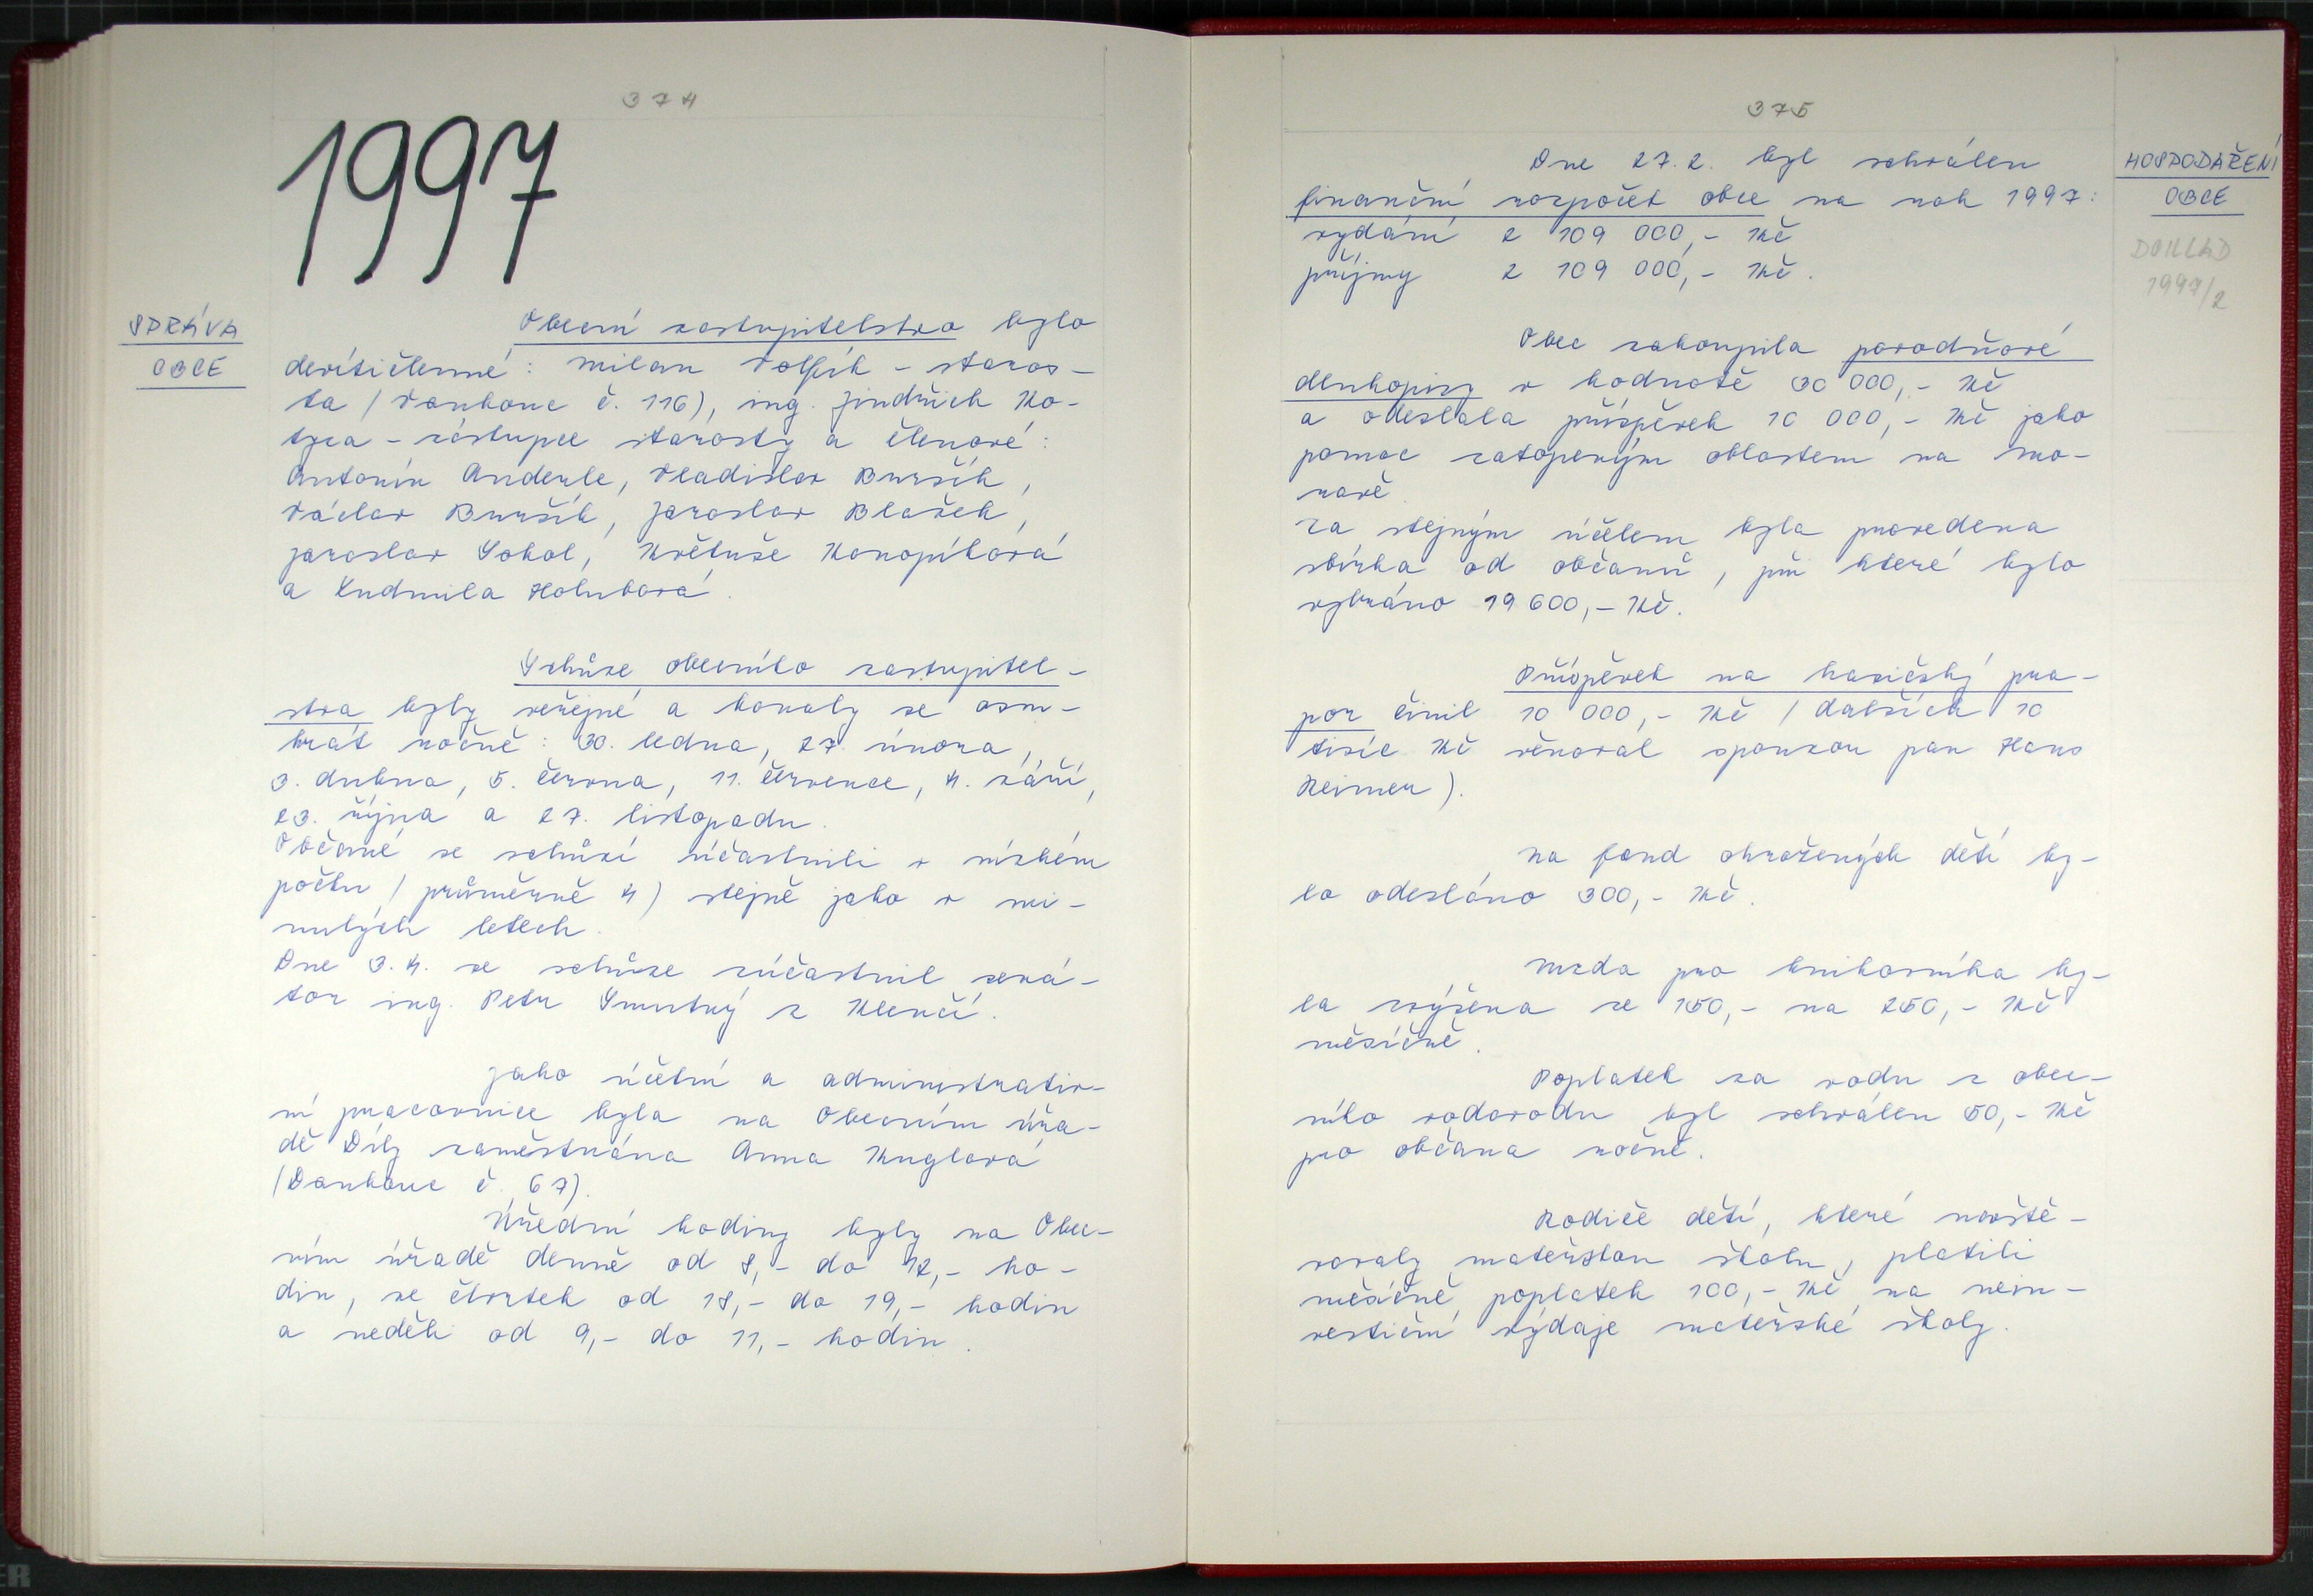 374
1997
SPRÁVA
OBCE
Obecní zastupitelstvo bylo
devítičlenné: Milan Volfík - staros-
ta (Vankouc č. 116), ing. Jindřich Ko-
tyza - zástupce starosty a členové:
Antonín Anderle, Vladislav Buršík,
Václav Buršík, Jaroslav Blažek,
Jaroslav Sokol, Květuše Konopíková
a Ludmila Holubová.
Schůze obecního zastupitel-
stva byly veřejné a konaly se osm-
krát ročně: 30. ledna, 27. února,
3. dubna, 5. června, 11. července, 4. září,
23. října a 27. listopadu.
Občané se schůzí účastnili v nízkém
počtu (průměrně 4) stejně jako v mi-
nulých letech.
Dne 3.4. se schůze zúčastnil sená-
tor ing. Petr Smutný z Klenčí.
Jako účetní a administrativ-
ní pracovnice byla na Obecním úřa-
dě Díly zaměstnána Anna Kuglová
(Dankouc č. 67).
Úřední hodiny byly na Obec-
ním úřadě denně od 8,- do 12,- ho-
din, ve čtvrtek od 18,- do 19,- hodin
a neděli od 9,- do 11,- hodin.
375
HOSPODAŘENÍ
OBCE
DOKLAD
1997/2
Dne 27.2. byl schválen
finanční rozpočet obce na rok 1997:
vydání 2 109 000,- Kč
příjmy 2 109 000,- Kč.
Obec zakoupila povodňové
dluhopisy v hodnotě 30 000,- Kč
a odeslala příspěvek 10 000,- Kč jako
pomoc zatopeným oblastem na Mo-
ravě.
Za stejným účelem byla provedena
sbírka od občanů, při které bylo
vybráno 19 600,- Kč.
Příspěvek na hasičský pra-
por činil 10 000,- Kč (dalších 10
tisíc Kč věnoval sponzor pan Hans
Reimer).
Na fond ohrožených dětí by-
lo odesláno 300,- Kč.
Mzda pro knihovníka by-
la zvýšena ze 150,- na 250,- Kč
měsíčně.
Poplatek za vodu z obec-
ního vodovodu byl schválen 50,- Kč
pro občana ročně.
Rodiče dětí, které navště-
vovaly mateřskou školu, platili
měsíčně poplatek 100,- Kč na nein-
vestiční výdaje mateřské školy.